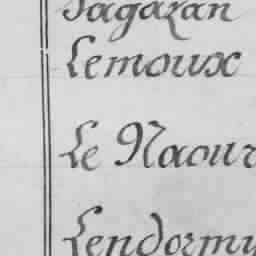 Sagazan
Lemoux
Le Naour
Lendormy